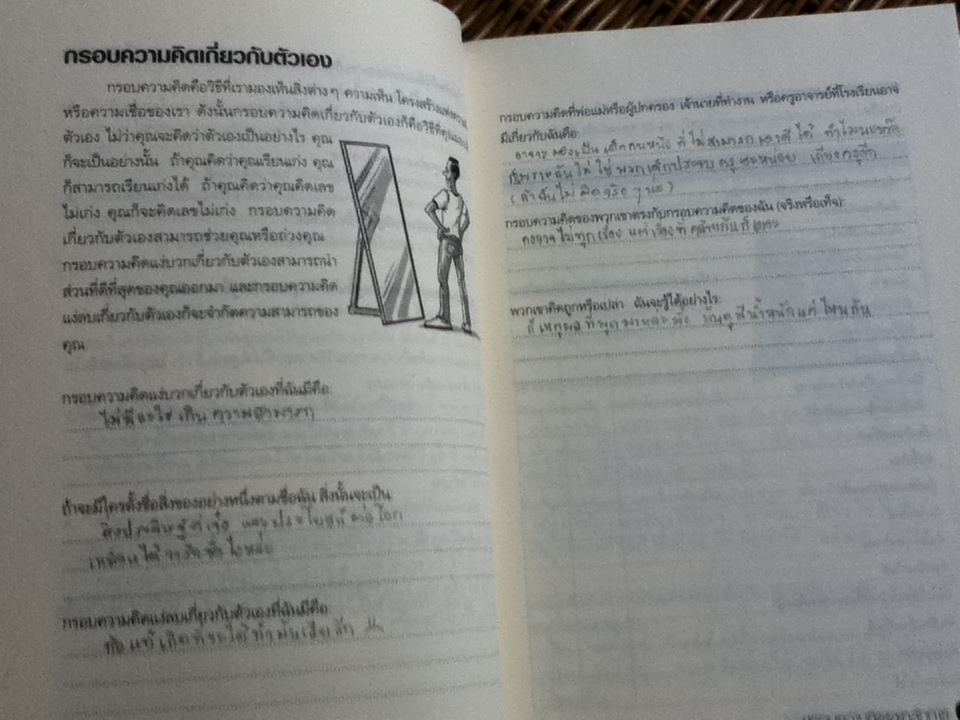 กรอบความคิดเกี่ยวกับตัวเอง
กรอบความคิดคือวิธีที่เรามองเห็นสิ่งต่างๆ ความเห็น โครงสร้างแห่งความ
หรือความเชื่อของเรา ดังนั้นกรอบความคิดเกี่ยวกับตัวเองก็คือวิธีที่คุณ
ตัวเอง ไม่ว่าคุณจะคิดว่าตัวเองเป็นอย่างไร คุณ
ก็จะเป็นอย่างนั้น ถ้าคุณคิดว่าคุณเรียนเก่ง คุณ
ก็สามารถเรียนเก่งได้ ถ้าคุณคิดว่าคุณคิดเลข
ไม่เก่ง คุณก็จะคิดเลขไม่เก่ง กรอบความคิด
เกี่ยวกับตัวเองสามารถช่วยคุณหรือถ่วงคุณ
กรอบความคิดแง่บวกเกี่ยวกับตัวเองสามารถนำ
ส่วนที่ดีที่สุดของคุณออกมา และกรอบความคิด
แง่ลบเกี่ยวกับตัวเองก็จะจำกัดความสามารถของ
คุณ
กรอบความคิดแง่บวกเกี่ยวกับตัวเองที่ฉันมีคือ:
ไม่มีอะไรเกินความสามารถ
ถ้าจะมีใครตั้งชื่อสิ่งของอย่างหนึ่งตามชื่อฉัน สิ่งนั้นจะเป็น:
สิ่งประดิษฐ์
กรอบความคิดแง่ลบเกี่ยวกับตัวเองที่ฉันมีคือ:
กรอบความคิดที่พ่อแม่หรือผู้ปกครอง เจ้านายที่ทำงาน หรือครูอาจารย์ที่โรงเรียนอาจ
มีเกี่ยวกับฉันคือ
อาจจะมองเป็นเด็กคนหนึ่งที่ไม่สามารถ
(ถ้าฉันไม่ผิดจริงๆนะ)
กรอบความคิดของพวกเขาตรงกับกรอบความคิดของฉัน (จริงหรือเท็จ):
คงจะไม่ทุกเรื่อง แต่เรื่องที่คล้ายกันก็
พวกเขาคิดถูกหรือเปล่า ฉันจะรู้ได้อย่างไร:
ก็เหตุผลที่พูดมา มีน้ำหนักแค่ไหนกัน